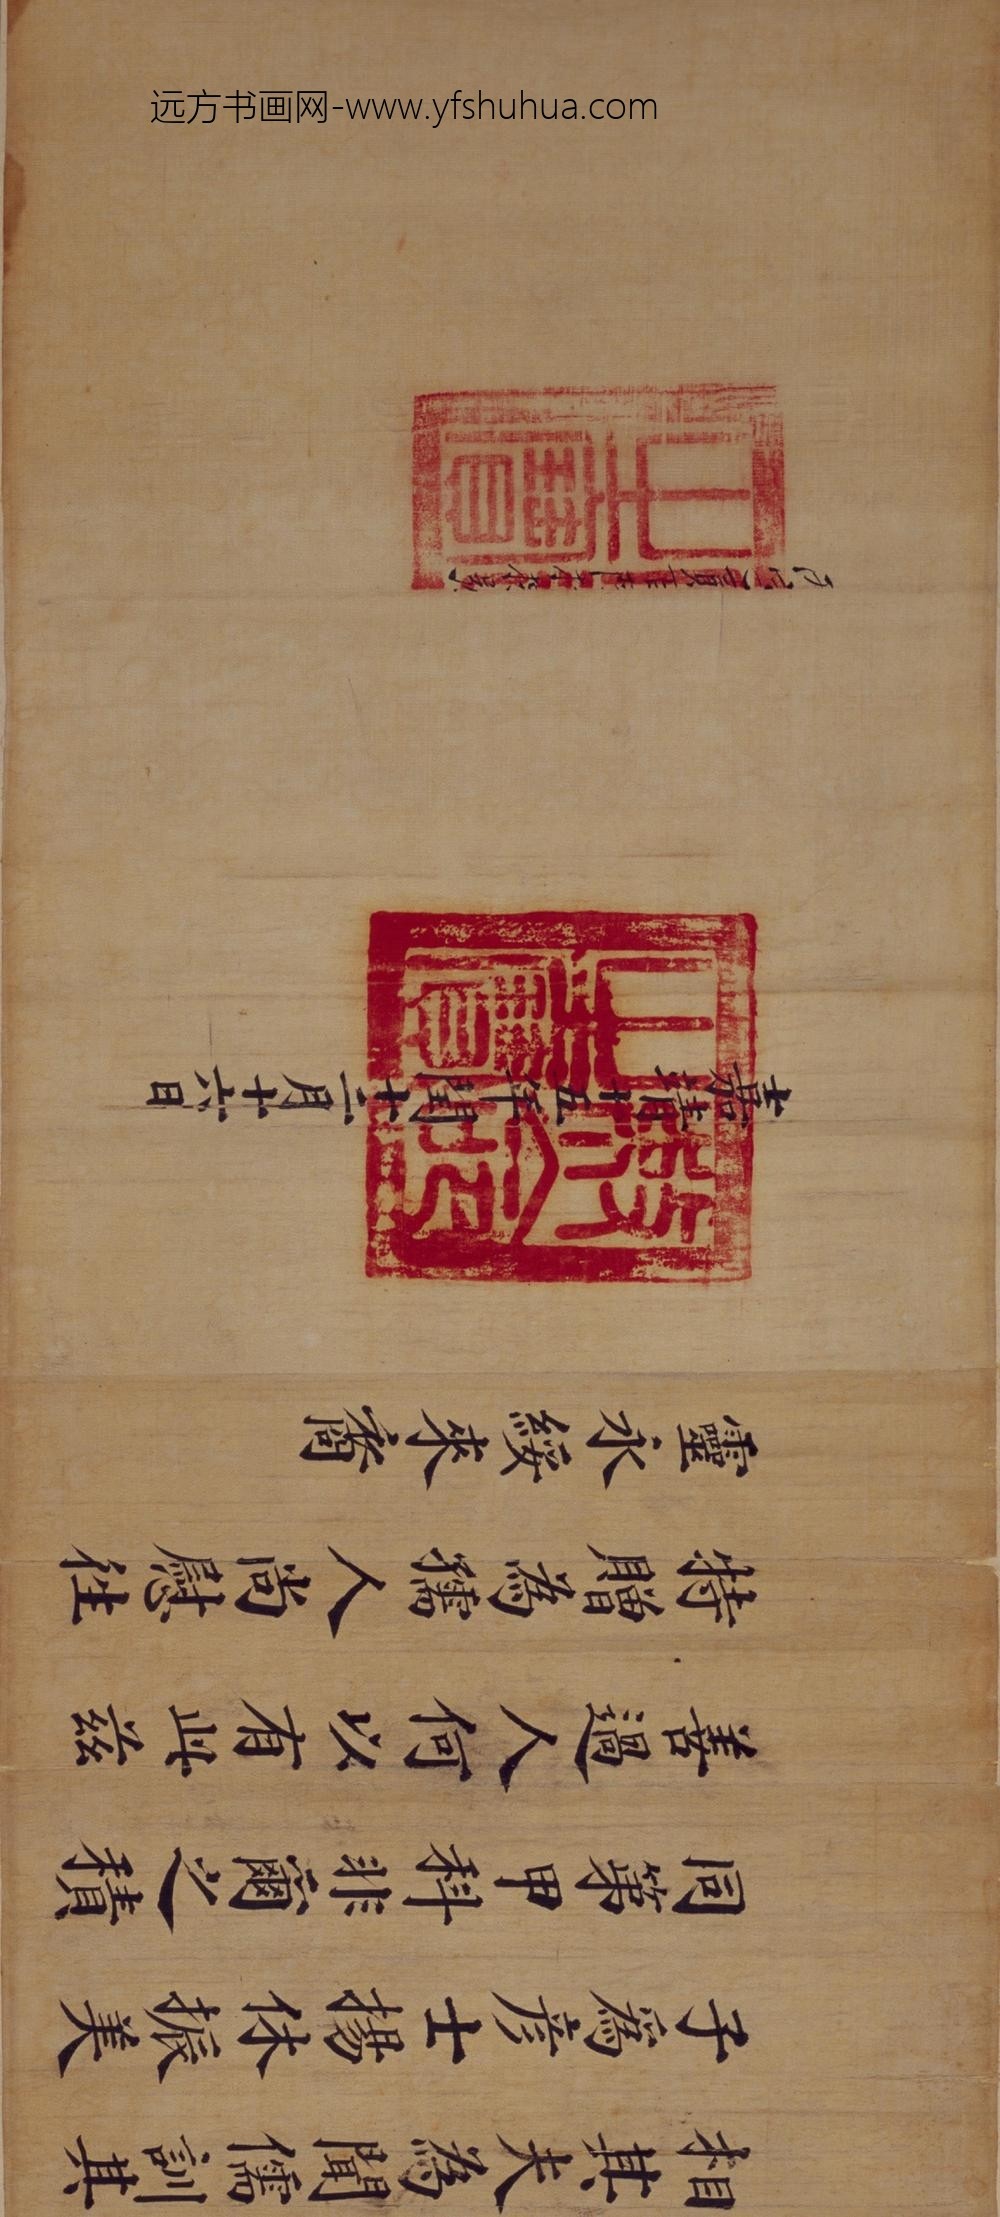 远方书画网-www.yfshuhua.com
相其夫為聞儒訓其
子為彥士揚休振美
同第甲科非爾之積
善過人何以有此茲
特贈為孺人尚慰往
靈永綏來裔
嘉靖十五年閏十二月十六日